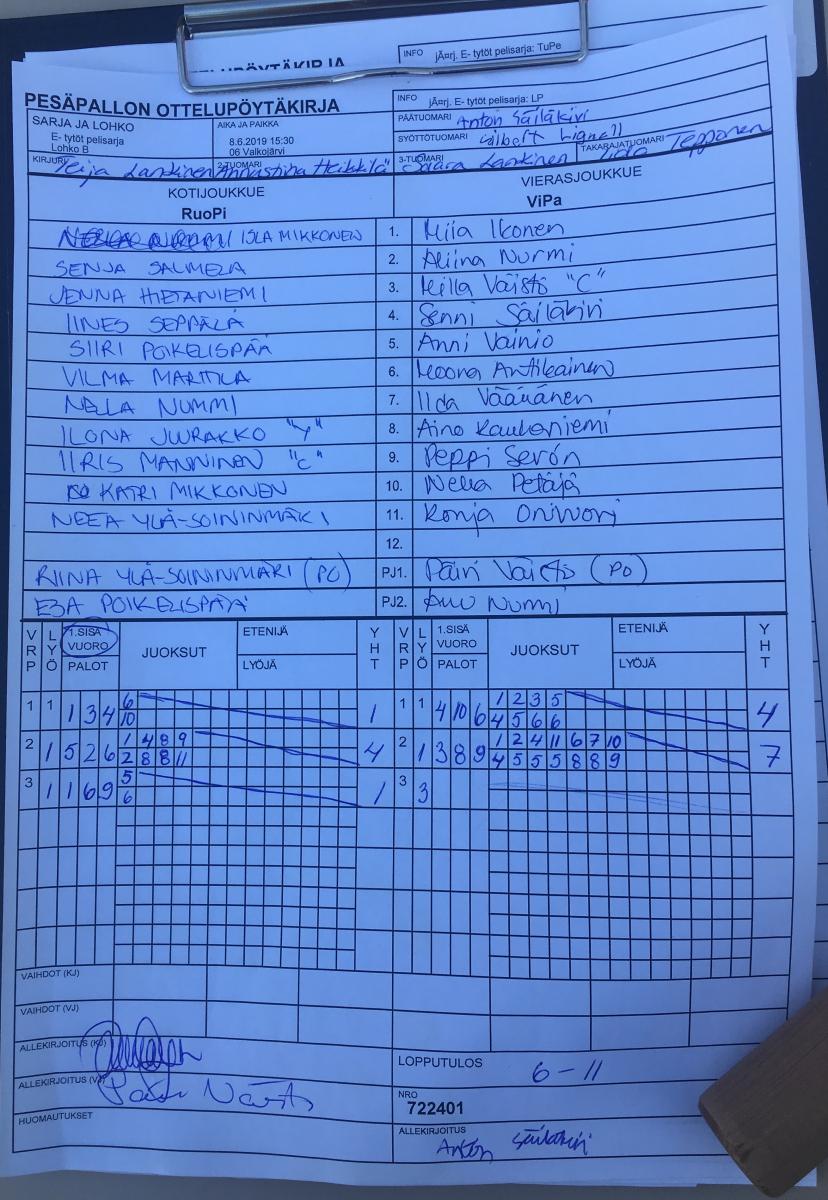 INFO jÄ¤rj. E- tytöt pelisarja: TuPe
PESÄPALLON OTTELUPÖYTÄKIRJA
INFO jÄ¤rj. E- tytöt pelisarja: LP
SARJA JA LOHKO
E- tytöt pelisarja
Lohko B
AIKA JA PAIKKA
8.6.2019 15:30
06 Valkojärvi
PÄÄTUOMARI Anton Säiläkivi
SYÖTTÖTUOMARI
KIRJURI Teija Lankinen
2-TUOMARI Annastiina Heikkilä
3-TUOMARI Saara Lankinen
TAKARAJATUOMARI Iida Tepponen
KOTIJOUKKUE
RuoPi
VIERASJOUKKUE
ViPa
ISLA MIKKONEN 1. Miia Ikonen
SENJA SALMELA 2. Aliina Nurmi
JENNA HIETANIEMI 3. Milla Väistö "C"
IINES SEPPÄLÄ 4. Senni Säiläkivi
SIIRI POIKELISPÄÄ 5. Anni Vainio
VILMA MARTTILA 6. Moona Antikainen
NELLA NUMMI 7. Iida Väänänen
ILONA JUURAKKO "Y" 8. Aino Kaukoniemi
IIRIS MANNINEN "C" 9. Peppi Serón
KATRI MIKKONEN 10. Neea Petäjä
NEEA YLÄ-SOININMÄKI 11. Ronja
12.
RIINA YLÄ-SOININMÄKI (PO) PJ1. Päivi Väistö (PO)
ESA POIKELISPÄÄ PJ2. Nurmi
VRP LYÖ 1.SISÄ VUORO PALOT JUOKSUT ETENIJÄ LYÖJÄ YHT VRP LYÖ 1.SISÄ VUORO PALOT JUOKSUT ETENIJÄ LYÖJÄ YHT
6 1 2 3 5
1 1 1 3 4 1 1 1 4 10 6 4
10 4 5 6 6
1 4 8 9 1 2 4 11 6 7 10
2 1 5 2 6 4 2 1 3 8 9 7
2 8 8 11 4 5 5 5 8 8 9
5
3 1 1 6 9 1 3 3
6
VAIHDOT (KJ)
VAIHDOT (VJ)
ALLEKIRJOITUS (KJ)
ALLEKIRJOITUS (VJ)
HUOMAUTUKSET
LOPPUTULOS 6-11
NRO
722401
ALLEKIRJOITUS
Anton Säiläkivi